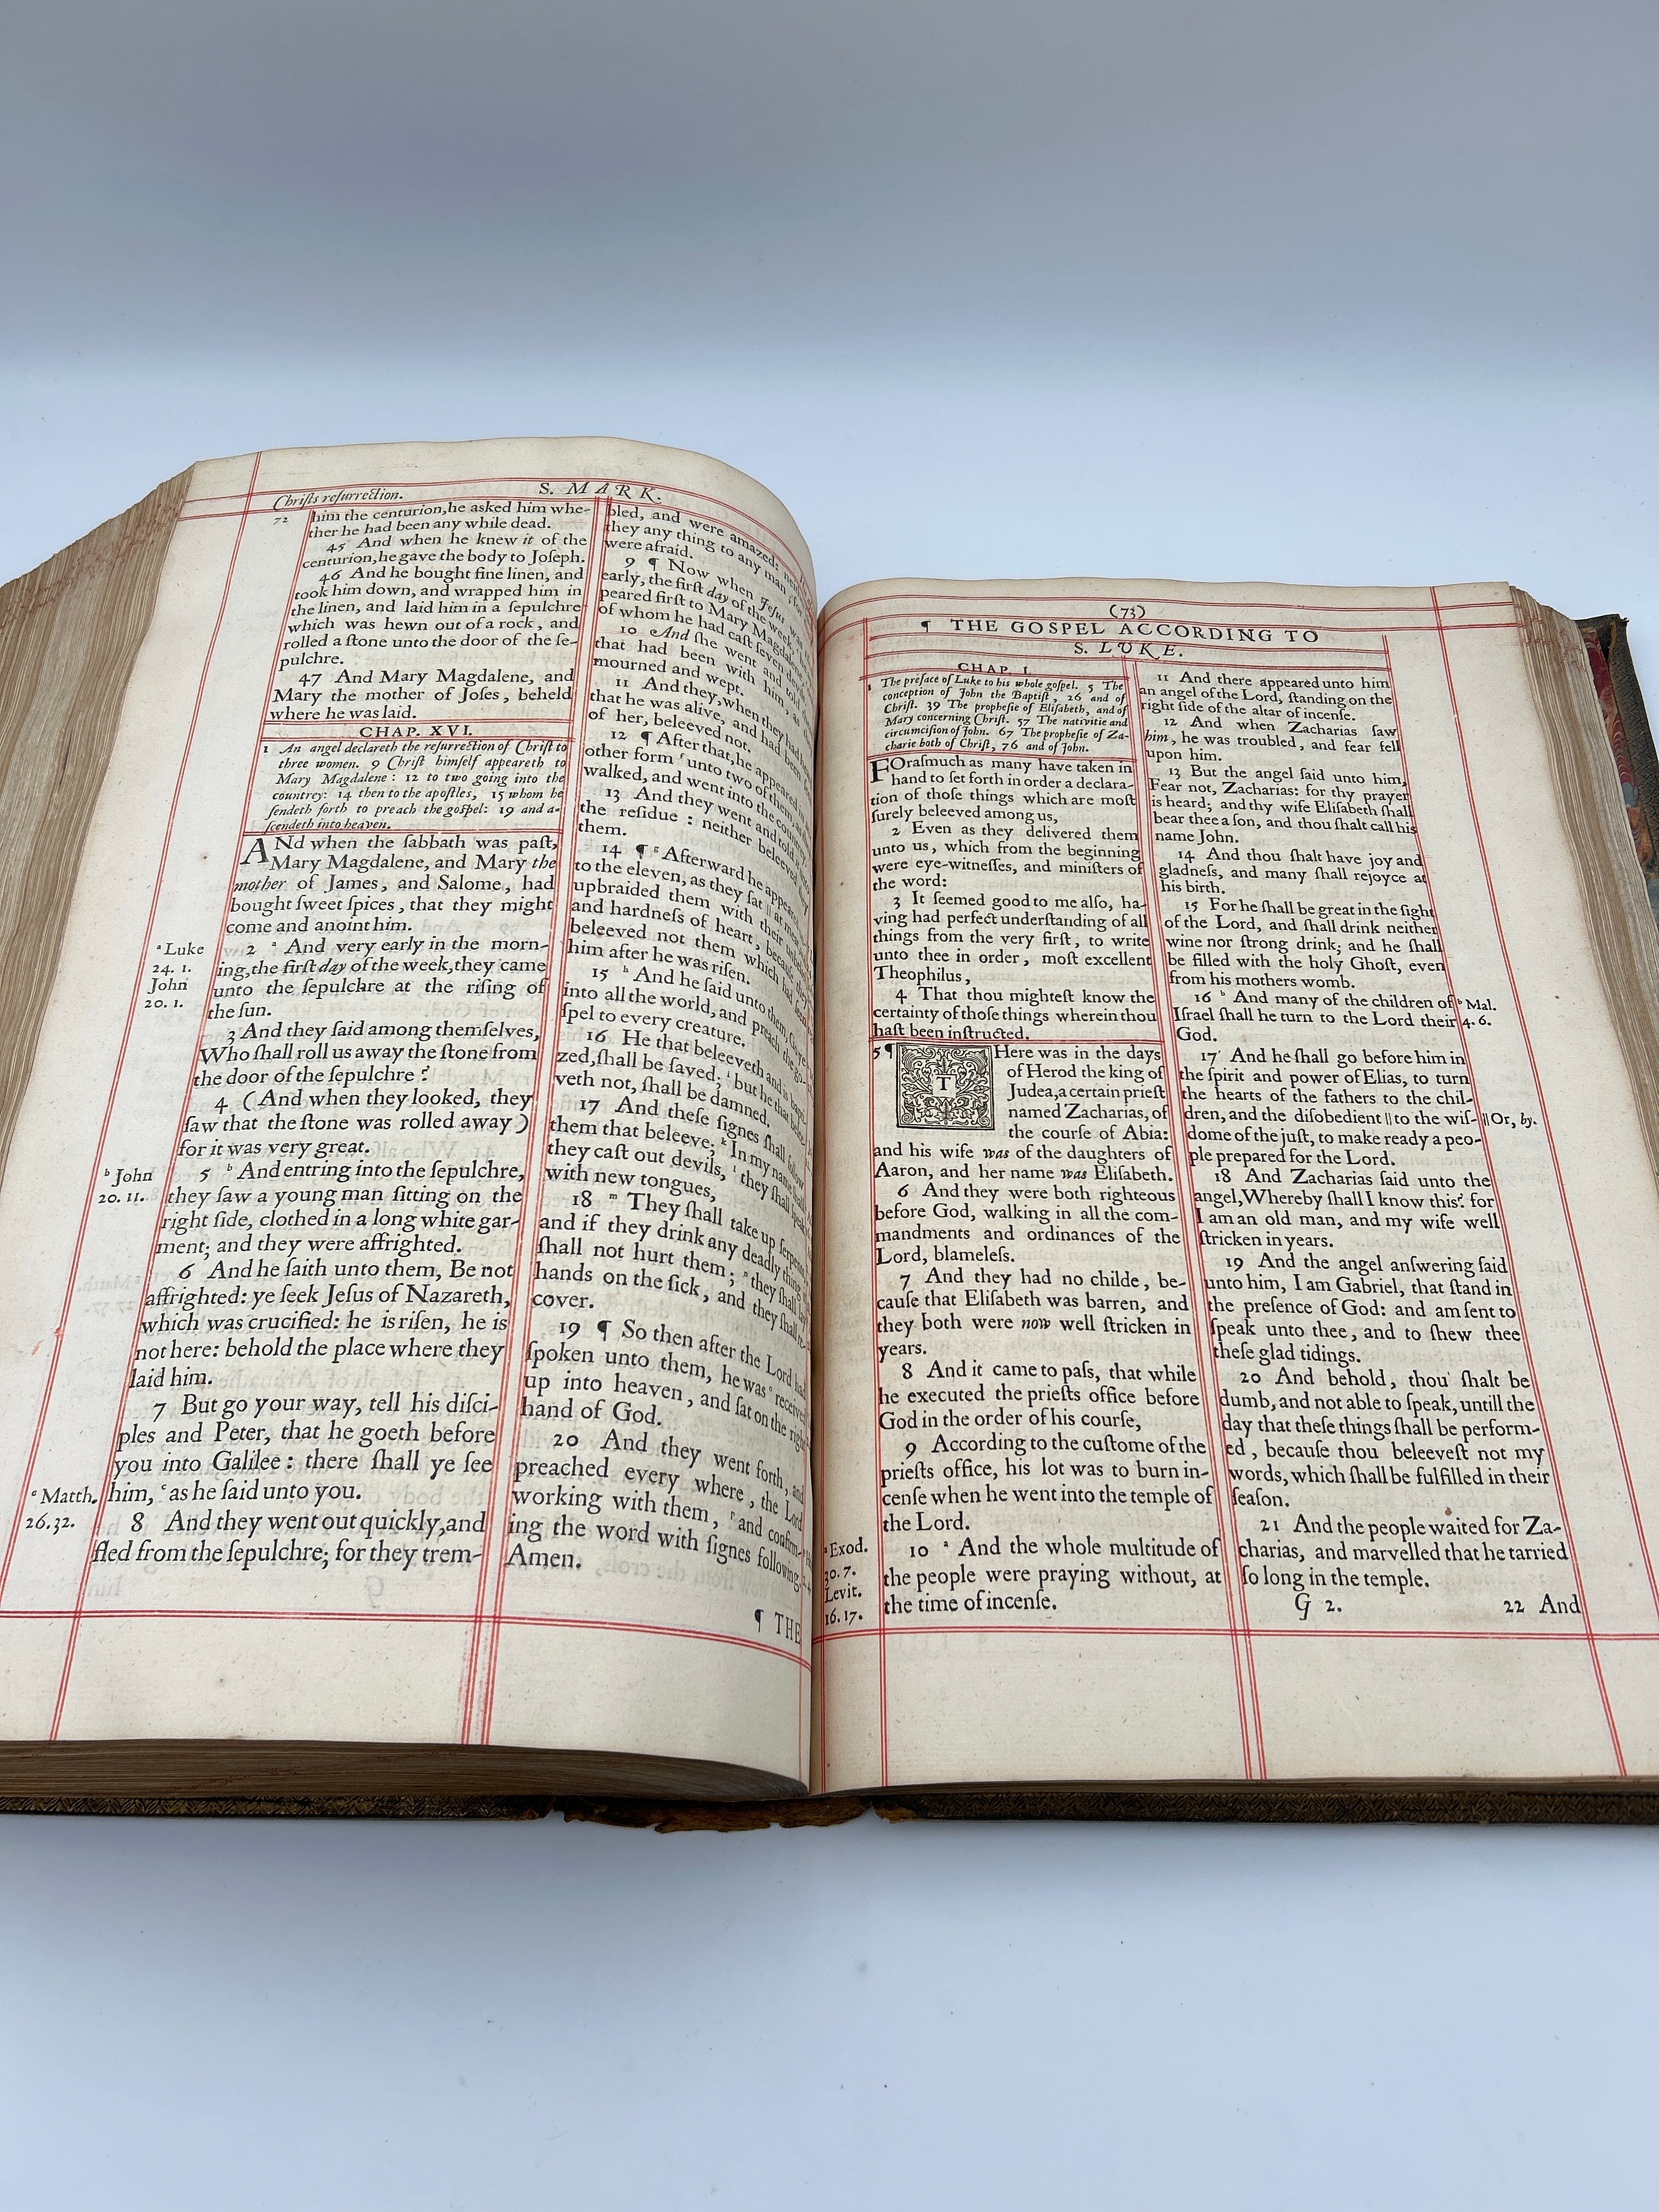 Chriſts reſurrection.
S. MARK.
72
him the centurion, he asked him whe-
ther he had been any while dead.
45 And when he knew it of the
centurion, he gave the body to Joſeph.
46 And he bought fine linen, and
took him down, and wrapped him in
the linen, and laid him in a ſepulchre
which was hewn out of a rock, and
rolled a ſtone unto the door of the ſe-
pulchre.
47 And Mary Magdalene, and
Mary the mother of Joſes, beheld
where he was laid.
CHAP. XVI.
1 An angel declareth the reſurrection of Chriſt to
three women. 9 Chriſt himſelf appeareth to
Mary Magdalene: 12 to two going into the
countrey: 14 then to the apoſtles, 15 whom he
ſendeth forth to preach the goſpel: 19 and a-
ſcendeth into heaven.
ANd when the ſabbath was paſt,
Mary Magdalene, and Mary the
mother of James, and Salome, had
bought ſweet ſpices, that they might
come and anoint him.
2 a And very early in the morn-
ing, the firſt day of the week, they came
unto the ſepulchre at the riſing of
the ſun.
3 And they ſaid among themſelves,
Who ſhall roll us away the ſtone from
the door of the ſepulchre?
4 (And when they looked, they
ſaw that the ſtone was rolled away)
for it was very great.
5 b And entring into the ſepulchre,
they ſaw a young man ſitting on the
right ſide, clothed in a long white gar-
ment; and they were affrighted.
6 And he ſaith unto them, Be not
affrighted: ye ſeek Jeſus of Nazareth,
which was crucified: he is riſen, he is
not here: behold the place where they
laid him.
7 But go your way, tell his diſci-
ples and Peter, that he goeth before
you into Galilee: there ſhall ye ſee
him, c as he ſaid unto you.
8 And they went out quickly, and
fled from the ſepulchre; for they trem-
a Luke
24. 1.
John
20. 1.
b John
20. 11.
c Matth.
26. 32.
bled, and were amazed:
they any thing to any man
were afraid.
9 ¶ Now when Jeſus was
early, the firſt day of the week,
peared firſt to Mary Magdalene
of whom he had caſt ſeven
10 And ſhe went and told
that had been with him, as
mourned and wept.
11 And they, when they had
that he was alive, and had been
of her, beleeved not.
12 ¶ After that, he appeared in
other form unto two of them,
walked, and went into the countrey.
13 And they went and told it
the reſidue: neither beleeved
them.
14 ¶ g Afterward he appeared
to the eleven, as they ſat || at meat,
upbraided them with their
and hardneſs of heart, becauſe they
beleeved not them which had
him after he was riſen.
15 h And he ſaid unto them, Go ye
into all the world, and preach the go-
ſpel to every creature.
16 He that beleeveth and is bapti-
zed, ſhall be ſaved; i but he that
veth not, ſhall be damned.
17 And theſe ſignes ſhall
them that beleeve; k In my name ſhall
they caſt out devils, l they ſhall ſpeak
with new tongues,
18 m They ſhall take up ſerpents,
and if they drink any deadly thing
ſhall not hurt them; n they ſhall lay
hands on the ſick, and they ſhall re-
cover.
19 ¶ So then after the Lord had
ſpoken unto them, he was received
up into heaven, and ſat on the right
hand of God.
20 And they went forth, and
preached every where, the Lord
working with them, p and confirm-
ing the word with ſignes following.
Amen.
¶ THE
(73)
¶ THE GOSPEL ACCORDING TO
S. LUKE.
CHAP. I.
1 The preface of Luke to his whole goſpel. 5 The
conception of John the Baptiſt, 26 and of
Chriſt. 39 The propheſie of Eliſabeth, and of
Mary concerning Chriſt. 57 The nativitie and
circumciſion of John. 67 The propheſie of Za-
charie both of Chriſt, 76 and of John.
FOraſmuch as many have taken in
hand to ſet forth in order a declara-
tion of thoſe things which are moſt
ſurely beleeved among us,
2 Even as they delivered them
unto us, which from the beginning
were eye-witneſſes, and miniſters of
the word:
3 It ſeemed good to me alſo, ha-
ving had perfect underſtanding of all
things from the very firſt, to write
unto thee in order, moſt excellent
Theophilus,
4 That thou mighteſt know the
certainty of thoſe things wherein thou
haſt been inſtructed.
5 ¶ THere was in the days
of Herod the king of
Judea, a certain prieſt
named Zacharias, of
the courſe of Abia:
and his wife was of the daughters of
Aaron, and her name was Eliſabeth.
6 And they were both righteous
before God, walking in all the com-
mandments and ordinances of the
Lord, blameleſs.
7 And they had no childe, be-
cauſe that Eliſabeth was barren, and
they both were now well ſtricken in
years.
8 And it came to paſs, that while
he executed the prieſts office before
God in the order of his courſe,
9 According to the cuſtome of the
prieſts office, his lot was to burn in-
cenſe when he went into the temple of
the Lord.
10 a And the whole multitude of
the people were praying without, at
the time of incenſe.
a Exod.
30. 7.
Levit.
16. 17.
11 And there appeared unto him
an angel of the Lord, ſtanding on the
right ſide of the altar of incenſe.
12 And when Zacharias ſaw
him, he was troubled, and fear fell
upon him.
13 But the angel ſaid unto him,
Fear not, Zacharias: for thy prayer
is heard; and thy wife Eliſabeth ſhall
bear thee a ſon, and thou ſhalt call his
name John.
14 And thou ſhalt have joy and
gladneſs, and many ſhall rejoyce at
his birth.
15 For he ſhall be great in the ſight
of the Lord, and ſhall drink neither
wine nor ſtrong drink; and he ſhall
be filled with the holy Ghoſt, even
from his mothers womb.
16 b And many of the children of
Iſrael ſhall he turn to the Lord their
God.
17 And he ſhall go before him in
the ſpirit and power of Elias, to turn
the hearts of the fathers to the chil-
dren, and the diſobedient || to the wiſ-
dome of the juſt, to make ready a peo-
ple prepared for the Lord.
18 And Zacharias ſaid unto the
angel, Whereby ſhall I know this? for
I am an old man, and my wife well
ſtricken in years.
19 And the angel anſwering ſaid
unto him, I am Gabriel, that ſtand in
the preſence of God: and am ſent to
ſpeak unto thee, and to ſhew thee
theſe glad tidings.
20 And behold, thou ſhalt be
dumb, and not able to ſpeak, untill the
day that theſe things ſhall be perform-
ed, becauſe thou beleeveſt not my
words, which ſhall be fulfilled in their
ſeaſon.
21 And the people waited for Za-
charias, and marvelled that he tarried
ſo long in the temple.
b Mal.
4. 6.
|| Or, by.
G 2.
22 And